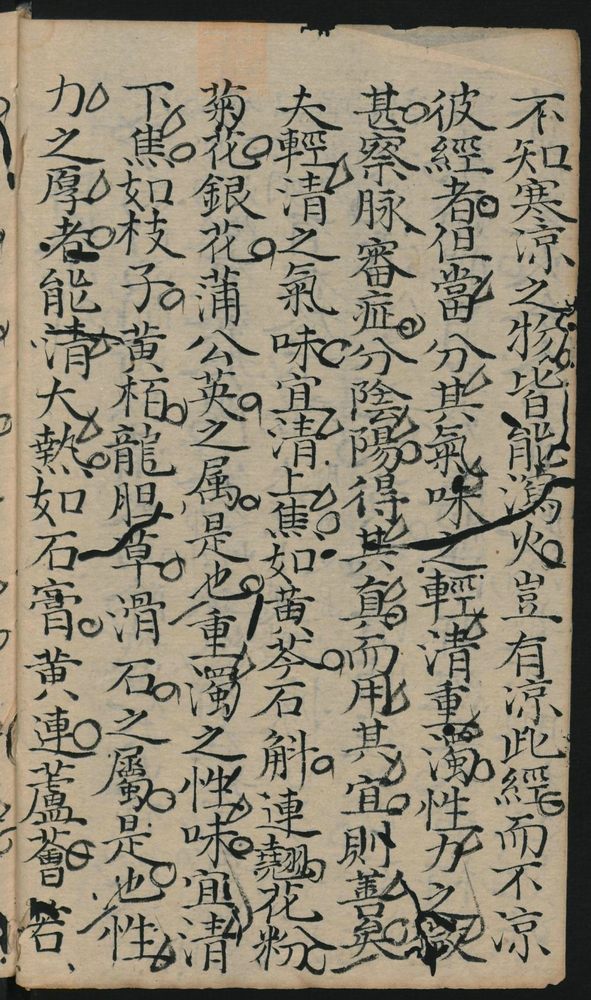 不知寒凉之物皆能瀉火豈有凉此經而不凉
彼經者但當分其氣味之輕清重濁性力之
甚察脉審症分陰陽得其真而用其宜則善矣
夫輕清之氣味宜清上焦如黄芩石斛連翹花粉
菊花銀花蒲公英之属是也重濁之性味宜清
下焦如枝子黄栢龍胆草滑石之屬是也性
力之厚者能清大熱如石膏黄連蘆薈苦